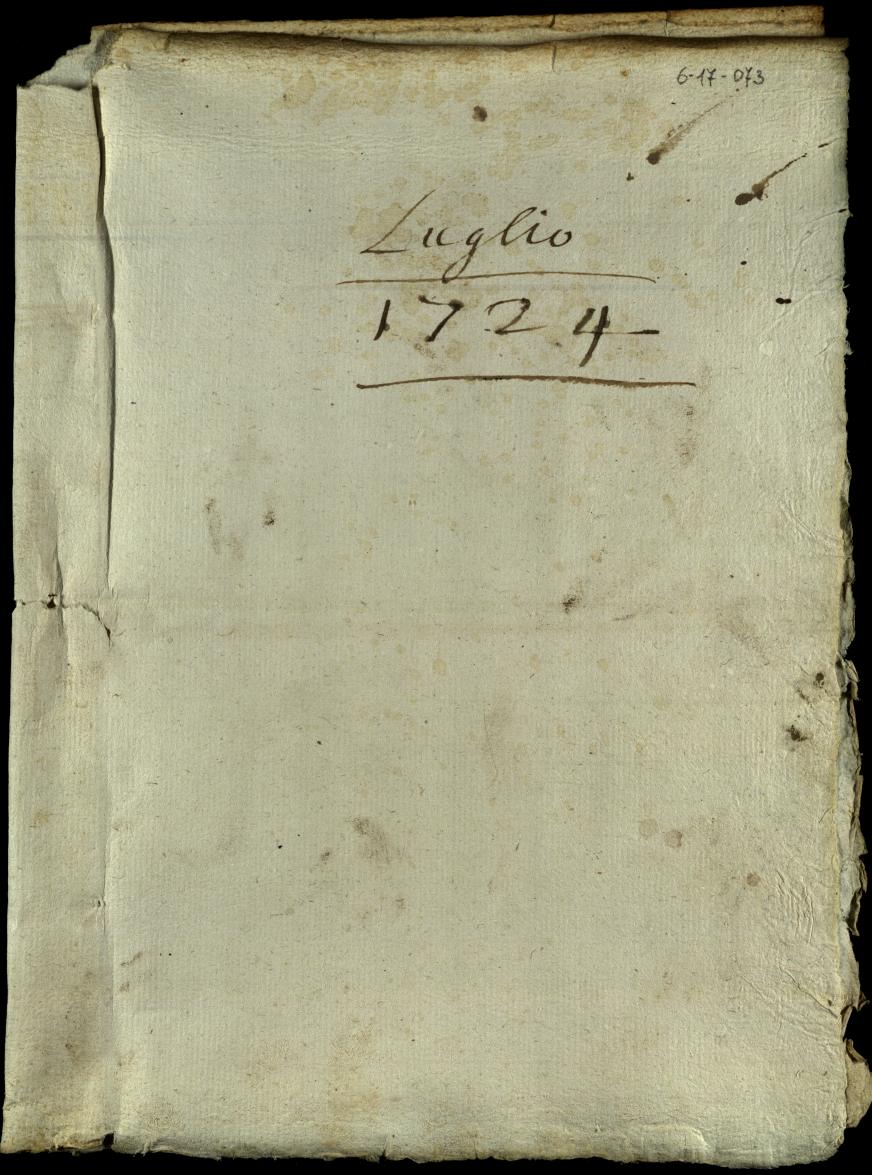 6-17-073
Luglio
1724